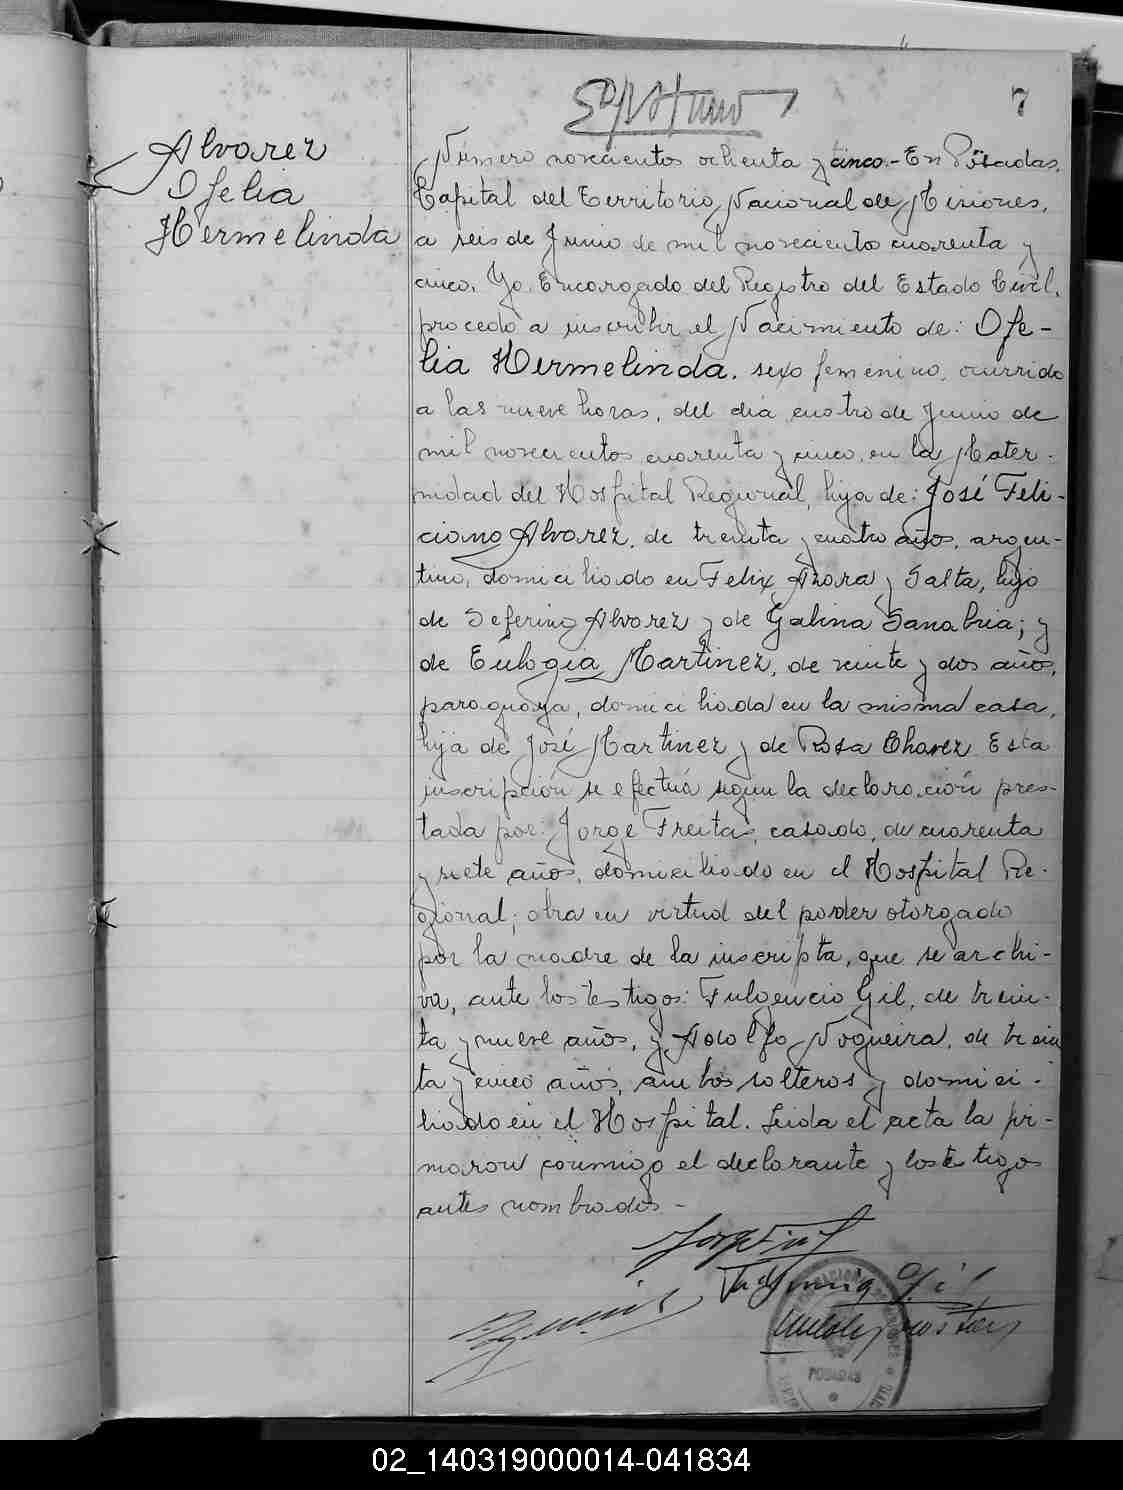 7
Alvarez
Ofelia
Hermelinda
Número novecientos ochenta y cinco.- En Posadas,
Capital del Territorio Nacional de Misiones,
a seis de Junio de mil novecientos cuarenta y
cinco. Yo, Encargado del Registro del Estado Civil,
procedo a inscribir el Nacimiento de: Ofe-
lia Hermelinda. sexo femenino, ocurrido
a las nueve horas, del día cuatro de Junio de
mil novecientos cuarenta y cinco, en la Mater-
nidad del Hospital Regional, hija de: José Feli-
ciano Alvarez, de treinta y cuatro años, argen-
tino, domiciliado en Felix Azara y Salta, hijo
de Seferino Alvarez y de Galina Sanabria; y
de Eulogia Martinez, de veinte y dos años,
paraguaya, domiciliada en la misma casa,
hija de José Martinez y de Rosa Chavez. Esta
inscripción se efectúa según la declaración pres-
tada por: Jorge Freitas, casado, de cuarenta
y siete años, domiciliado en el Hospital Re-
gional; obra en virtud del poder otorgado
por la madre de la inscripta, que se archi-
va, ante los testigos: Fulgencio Gil, de trein-
ta y nueve años, y Adolfo Nogueira, de trein
ta y cinco años, ambos solteros y domici-
liado en el Hospital. Leida el acta la fir-
maron conmigo el declarante y los testigos
antes nombrados -
POSADAS
02_140319000014-041834